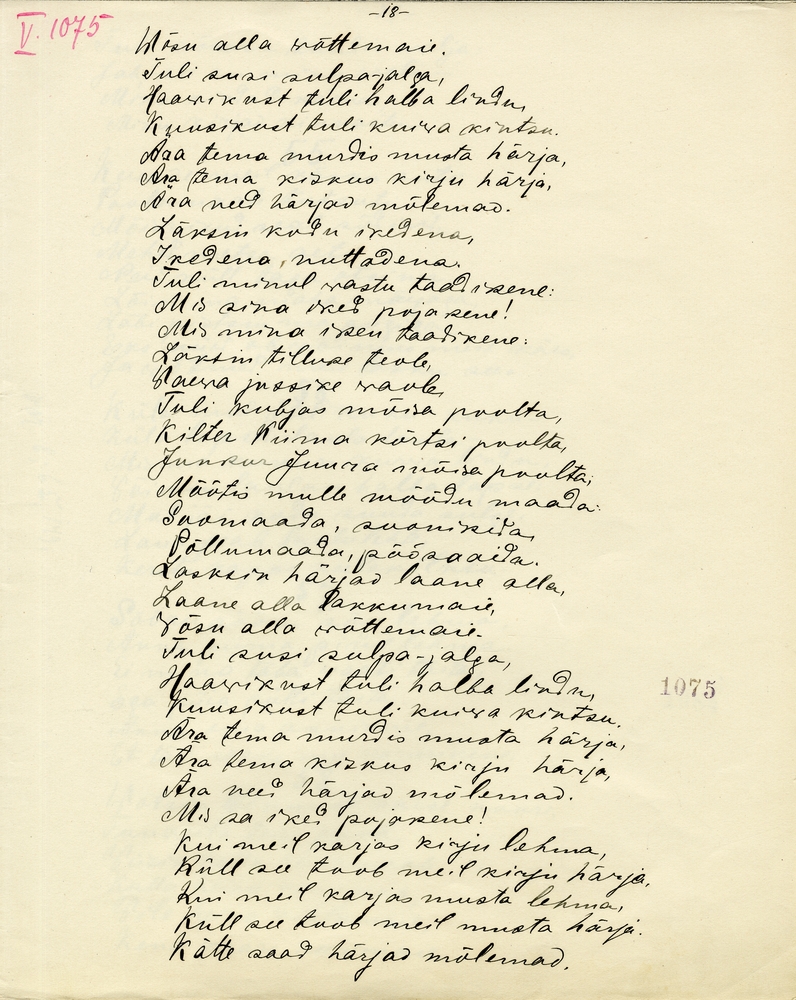 -18-
V. 1075
Wõsu alla wõttemaie.
Tuli susi sulpa-jalga,
Haawikust tuli halba lindu,
Kuusikust tuli kuiwa kintsu.
Ära tema murdis musta härja,
Ära tema kiskus kirju härja,
Ära need härjad mõlemad.
Läksin kodu ikedena,
Ikedena, nuttadena.
Tuli minul wastu taadikene:
Mis sina iked pojakene!
Mis mina iken taadikene:
Läksin tilluse teole,
Naewa jussike waole,
Tuli kubjas mõisa poolta,
Kilter Kiima kõrtsi poolta,
Junkur Juura mõisa poolta;
Mõõtis mulle mõõdu maada:
Soomaada, soonikida,
Põllumaada, põõsaaida.
Lasksin härjad laane alla,
Laane alla lakkumaie,
Võsu alla wõttemaie.
Tuli susi sulpa-jalga,
Haawikust tuli halba lindu,
1075
Kuusikust tuli kuiwa kintsu.
Ära tema murdis musta härja,
Ära tema kiskus kirju härja,
Ära need härjad mõlemad.
Mis sa iked pojakene!
Kui meil karjas kirju lehma,
Küll see toob meil kirju härja,
Kui meil karjas musta lehma,
Küll see toob meil musta härja.
Kätte saad härjad mõlemad.